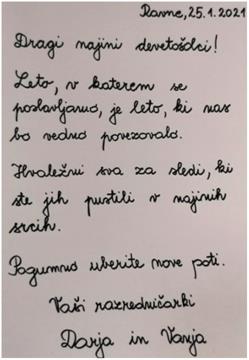 Ravne, 25.1.2021
Dragi najini devetošolci!
Leto, v katerem se
poslavljamo, je leto, ki nas
bo vedno povezovalo.
Hvaležni sva za sledi, ki
ste jih pustili v najinih
srcih.
Pogumno uberite nove poti.
Vaši razredničarki
Darja in Vanja